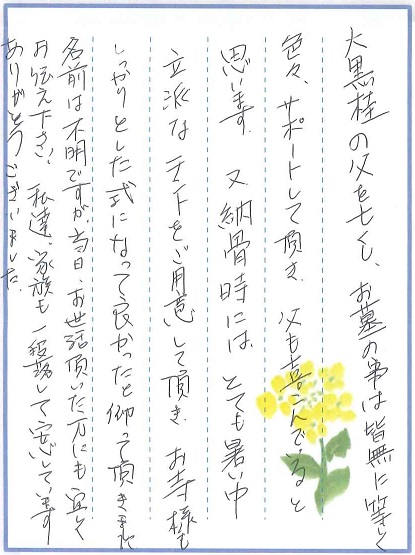 大黒柱の父を亡くし、お墓の事は皆無に等しく
色々、サポートして頂き、父も喜んでいると
思います。又納骨時には、とても暑い中
立派なテントをご用意して頂き、お寺様も
しっかりとした式になって良かったと仰って頂きました
名前は不明ですが、当日、お世話頂いた方にも宜しく
お伝え下さい。私達、家族も一段落して安心しています
ありがとうございました。